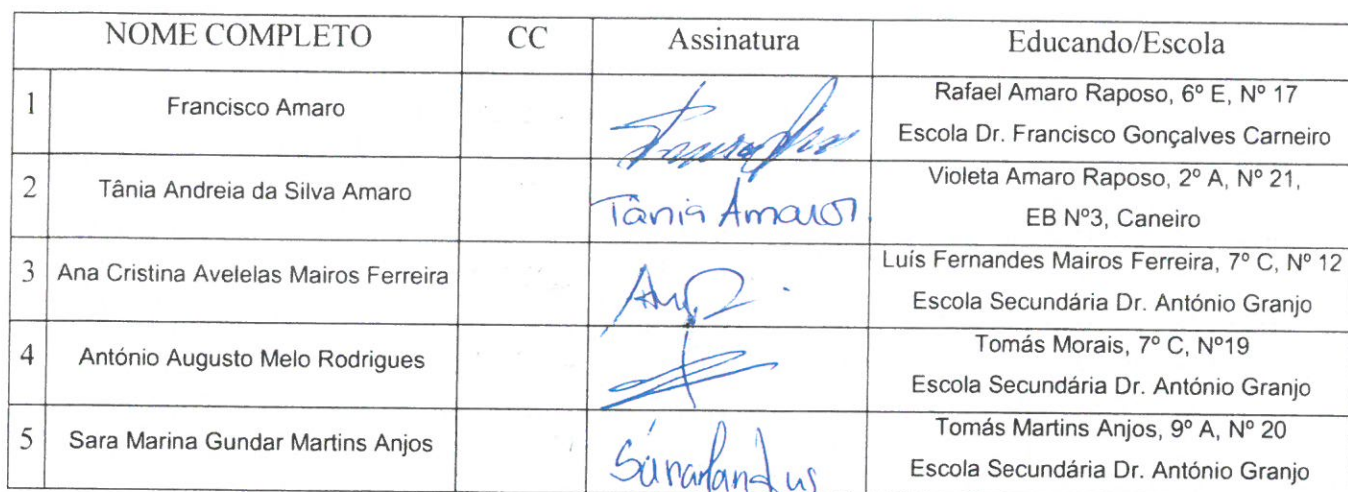 NOME COMPLETO CC Assinatura Educando/Escola
1 Francisco Amaro
Rafael Amaro Raposo, 6º E, Nº 17
Escola Dr. Francisco Gonçalves Carneiro
2 Tânia Andreia da Silva Amaro
Tânia Amaro
Violeta Amaro Raposo, 2º A, Nº 21,
EB Nº3, Caneiro
3 Ana Cristina Avelelas Mairos Ferreira
Luís Fernandes Mairos Ferreira, 7º C, Nº 12
Escola Secundária Dr. António Granjo
4 António Augusto Melo Rodrigues
Tomás Morais, 7º C, Nº19
Escola Secundária Dr. António Granjo
5 Sara Marina Gundar Martins Anjos
Tomás Martins Anjos, 9º A, Nº 20
Escola Secundária Dr. António Granjo